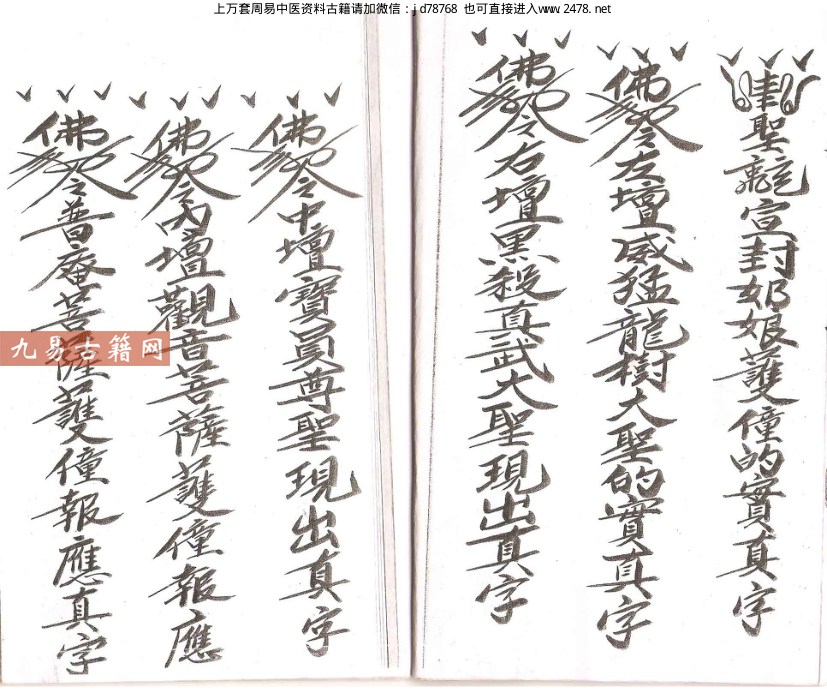 上万套周易中医资料古籍请加微信：jd78768 也可直接进入www.2478.net
聖 宣封奶娘護僮的實真字
佛 令左壇威猛龍樹大聖的實真字
佛 令右壇黑殺真武大聖現出真字
佛 令中壇寶 尊聖現出真字
佛 令內壇觀音菩薩護僮報應
佛 令普庵菩薩護僮報應真字
九易古籍网